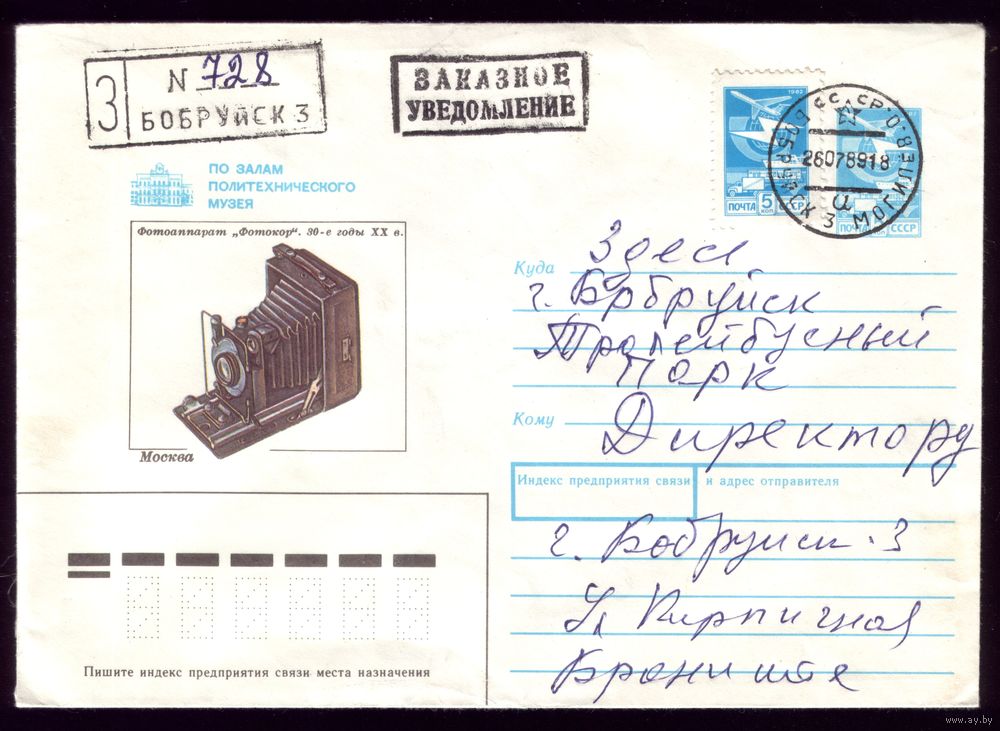 З
N 728
БОБРУЙСК 3
ЗАКАЗНОЕ
УВЕДОМЛЕНИЕ
ПО ЗАЛАМ
ПОЛИТЕХНИЧЕСКОГО
МУЗЕЯ
Фотоаппарат „Фотокор". 30-е годы XX в.
Москва
1982
ПОЧТА 5 КОП СССР
ПОЧТА СССР
СССР
БОБРУЙСК 3 МОГИЛЕВ.О.
26078918
Куда Здесь
г. Бобруйск
Тролейбусный
Парк
Кому Директору
Индекс предприятия связи и адрес отправителя
г. Бобруйск-3
Ул Кирпичная
Пишите индекс предприятия связи места назначения
www.ay.by